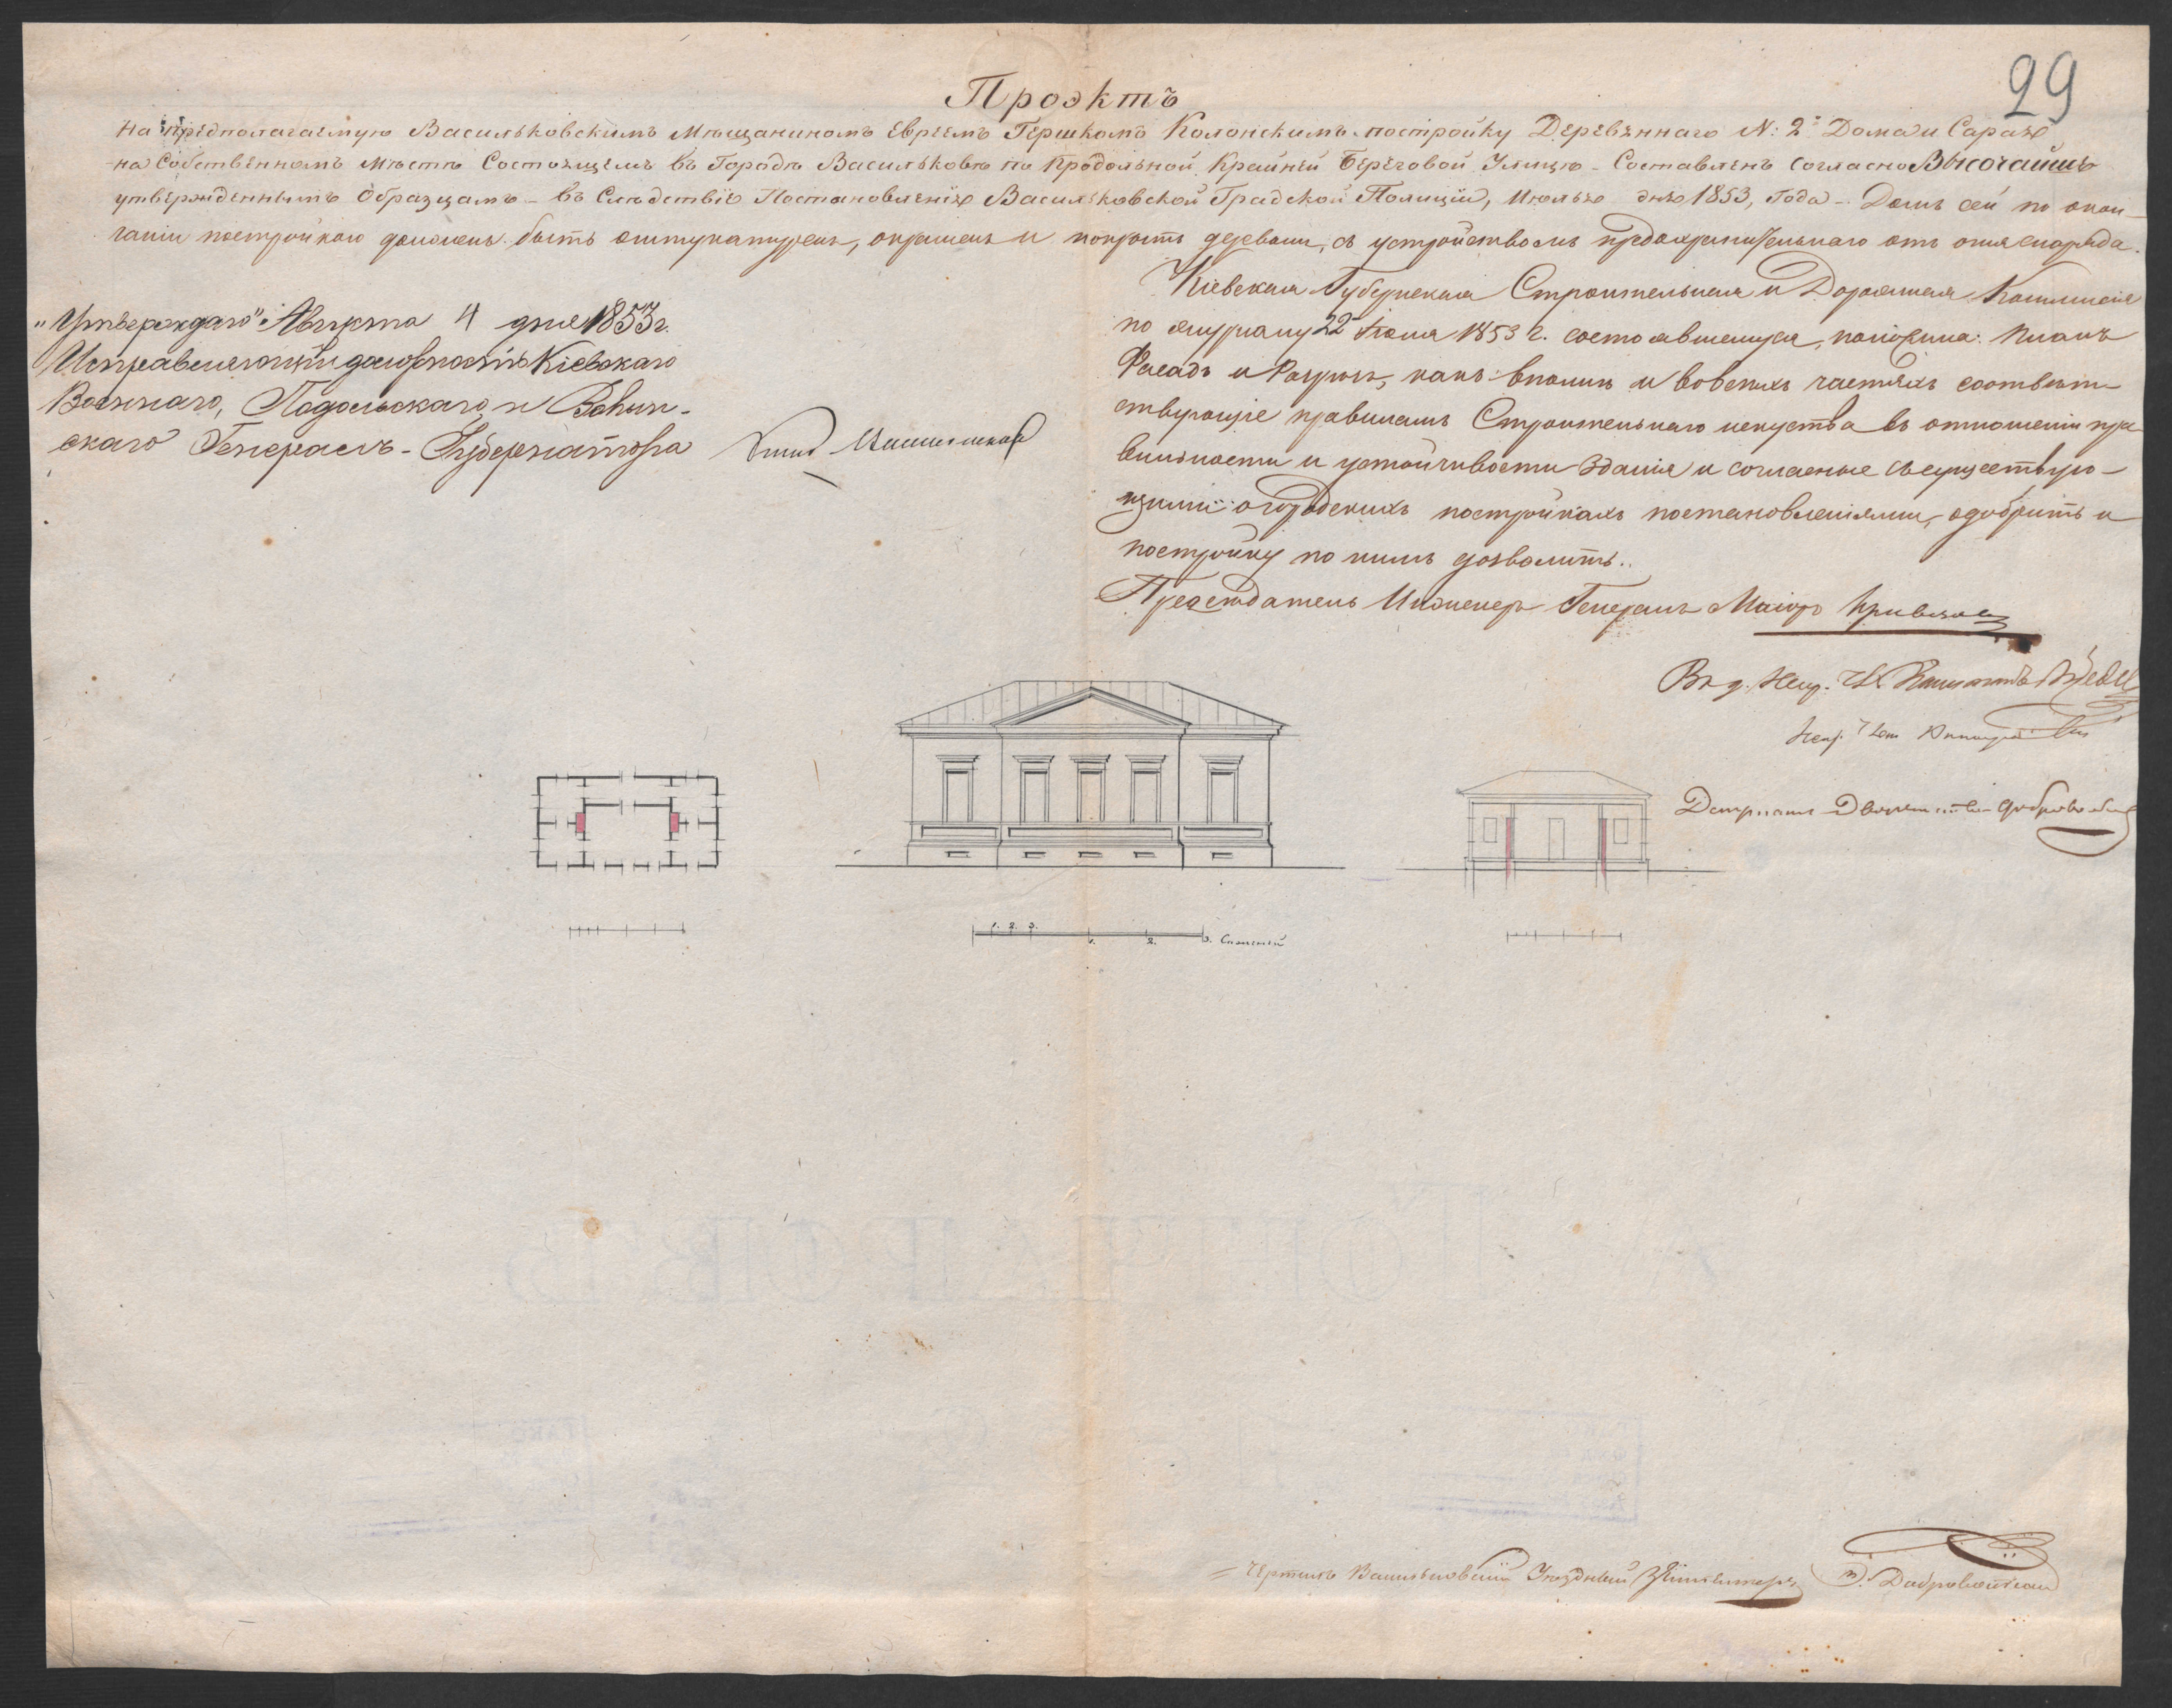 29
Проэктъ
На предполагаемую Васильковскимъ Мѣщаниномъ Евреемъ Гершкомъ Колонскимъ постройку Деревяннаго N: 2º Дома и Сарая
на Собственномъ мѣстѣ Состоящемъ въ Городѣ Васильковѣ по Продольной Крайней Береговой Улицѣ – Составленъ согласно Высочайше
утвержденнымъ Образцамъ – въ Слѣдствіе Постановленія Васильковской Градской Полиціи, Июлья дня 1853, Года – Домъ сей по окон–
чаніи постройкою долженъ быть оштукатуренъ, окрашенъ и покрытъ деревом, съ устройствомъ предохранительнаго отъ огня снаряда.
„Утверждаю" Августа 4 дня 1853 г.
Исправляющій должность Кіевскаго
Военнаго, Подольскаго и Волын–
скаго Генералъ–Губернатора
Кіевская Губернская Строительная и Дорожная Коммисія
по журналу 22 Іюля 1853 г. состоявшемуся, положила: планъ
Фасадъ и Разрѣзъ, какъ вполнѣ и во всѣхъ частяхъ соотвѣт–
ствующіе правиламъ Строительнаго искуства въ отношеніи пра
вильности и устойчивости зданія и согласные съ существую–
щими о городскихъ постройкахъ постановленіями, одобрить и
постройку по нимъ дозволить..
Предсѣдатель Инженеръ Генералъ Маіоръ
Депутатъ Дворянства
1. 2. 3. 1. 2. 3. Саженей
Чертилъ Васильковскій Уѣздный Землемѣръ Добровольскій